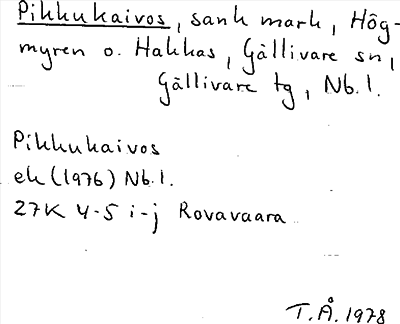 Pikkukaivos, sank mark, Hög-
myren o. Hakkas, Gällivare sn,
Gällivare tg, Nb.l.
Pikkukaivos
ek (1976) Nb.l.
27K 4-5 i-j Rovavaara
T.Å. 1978